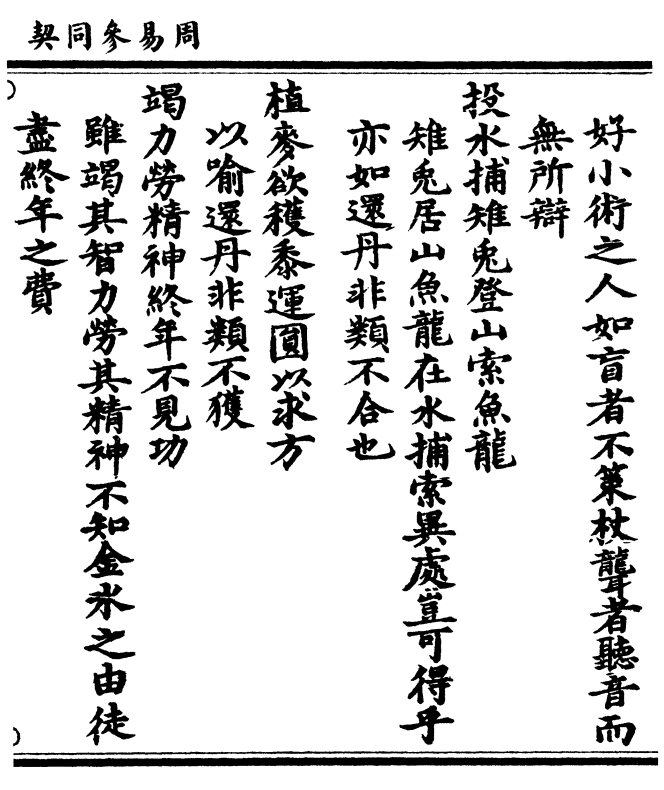 周易參同契
好小術之人如盲者不策杖聾者聽音而
無所辯
投水捕雉兎登山索魚龍
雉兎居山魚龍在水捕索異處豈可得乎
亦如還丹非類不合也
植麥欲穫黍運圓以求方
以喻還丹非類不獲
竭力勞精神終年不見功
雖竭其智力勞其精神不知金水之由徒
盡終年之費